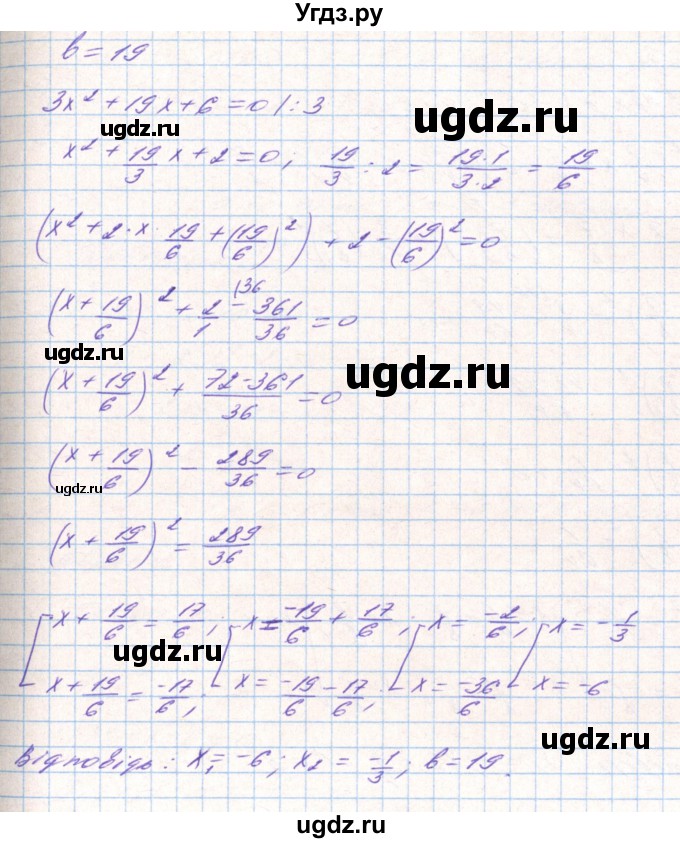 Угдз.ру
в = 19
3x² + 19x + 6 = 0 / : 3
ugdz.ru
ugdz.ru
x² + 19/3 x + 2 = 0 ; 19/3 : 2 = 19·1/3·2 = 19/6
(x² + 2·x·19/6 + (19/6)²) + 2 - (19/6)² = 0
(x + 19/6)² + 2/1 (36 - 361/36 = 0
ugdz.ru
ugdz.ru
(x + 19/6)² + 72-361/36 = 0
(x + 19/6)² - 289/36 = 0
ugdz.ru
(x + 19/6)² = 289/36
[ x + 19/6 = 17/6 ; [ x = -19/6 + 17/6 ; [ x = -2/6 ; [ x = -1/3
ugdz.ru
x + 19/6 = -17/6 ; x = -19/6 - 17/6 ; x = -36/6 x = -6
Відповідь: x₁ = -6 ; x₂ = -1/3 ; в = 19.
ugdz.ru
ugdz.ru
ugdz.ru